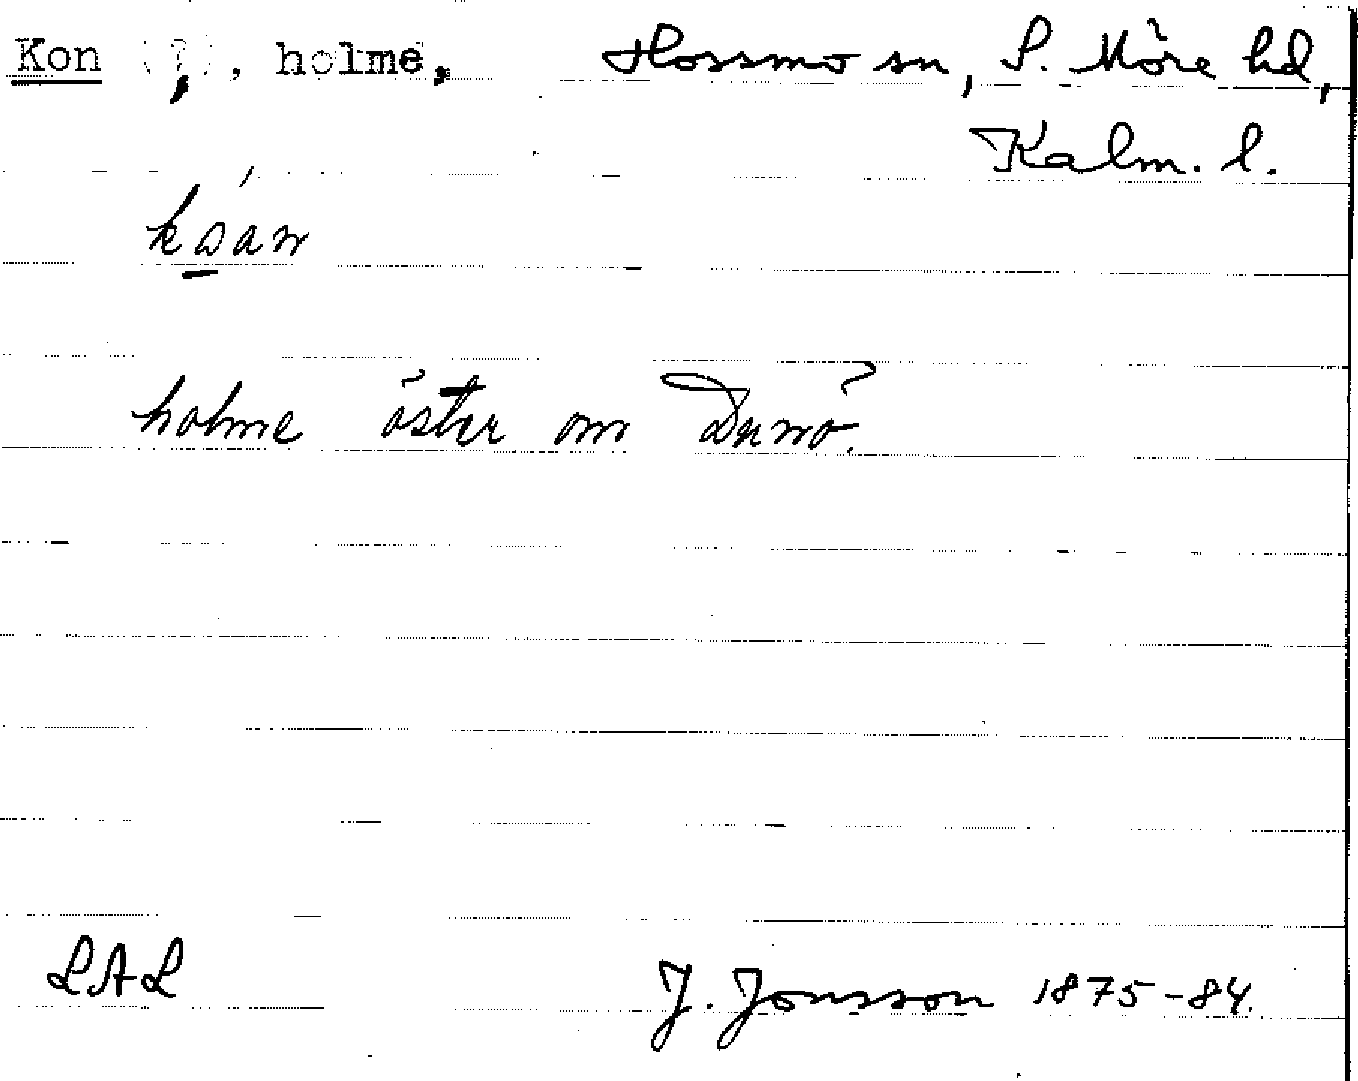 Kon (?), holme, Hossmo sn, S. Möre hd,
Kalm. l.
holme öster om Dunö.
LAL J. Jonsson 1875-84.